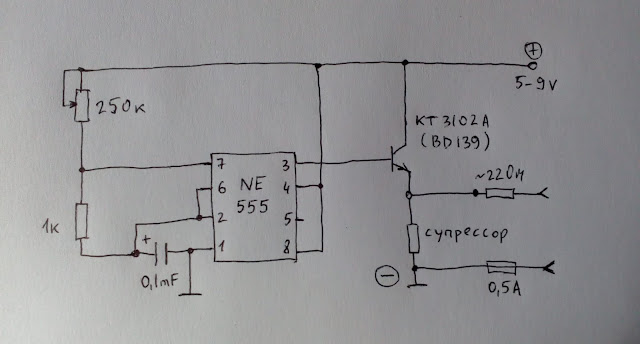 +
5-9V
250к
КТ3102А
(BD139)
7
3
6
NE
4
~220м
2
555
5
1к
+
1
8
супрессор
0,1mF
−
0,5А